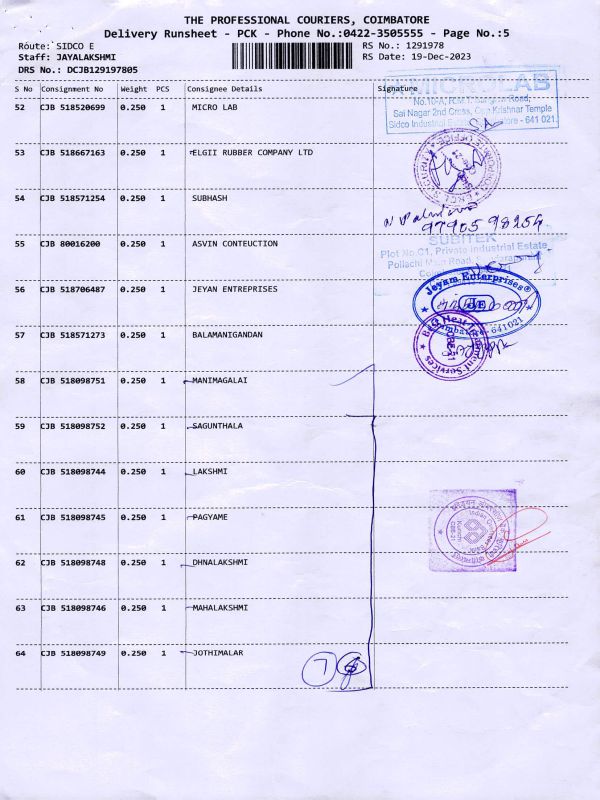 THE PROFESSIONAL COURIERS, COIMBATORE
Delivery Runsheet - PCK - Phone No.:0422-3505555 - Page No.:5
Route: SIDCO E RS No.: 1291978
Staff: JAYALAKSHMI RS Date: 19-Dec-2023
DRS No.: DCJB129197805
S No Consignment No Weight PCS Consignee Details Signature
52 CJB 518520699 0.250 1 MICRO LAB
MICROLAB
Sai Nagar 2nd Cross, Opp. Krishnar Temple
Sidco Industrial - 641 021.
53 CJB 518667163 0.250 1 ELGII RUBBER COMPANY LTD
54 CJB 518571254 0.250 1 SUBHASH
97905 98254
55 CJB 80016200 0.250 1 ASVIN CONTEUCTION
SUBITEK
Plot No.G1, Private Industrial Estate
Pollachi Main Road,
56 CJB 518706487 0.250 1 JEYAN ENTREPRISES
Jeyam Enterprises
641021
57 CJB 518571273 0.250 1 BALAMANIGANDAN
58 CJB 518098751 0.250 1 MANIMAGALAI
59 CJB 518098752 0.250 1 SAGUNTHALA
60 CJB 518098744 0.250 1 LAKSHMI
61 CJB 518098745 0.250 1 PAGYAME
62 CJB 518098748 0.250 1 DHNALAKSHMI
63 CJB 518098746 0.250 1 MAHALAKSHMI
64 CJB 518098749 0.250 1 JOTHIMALAR
7